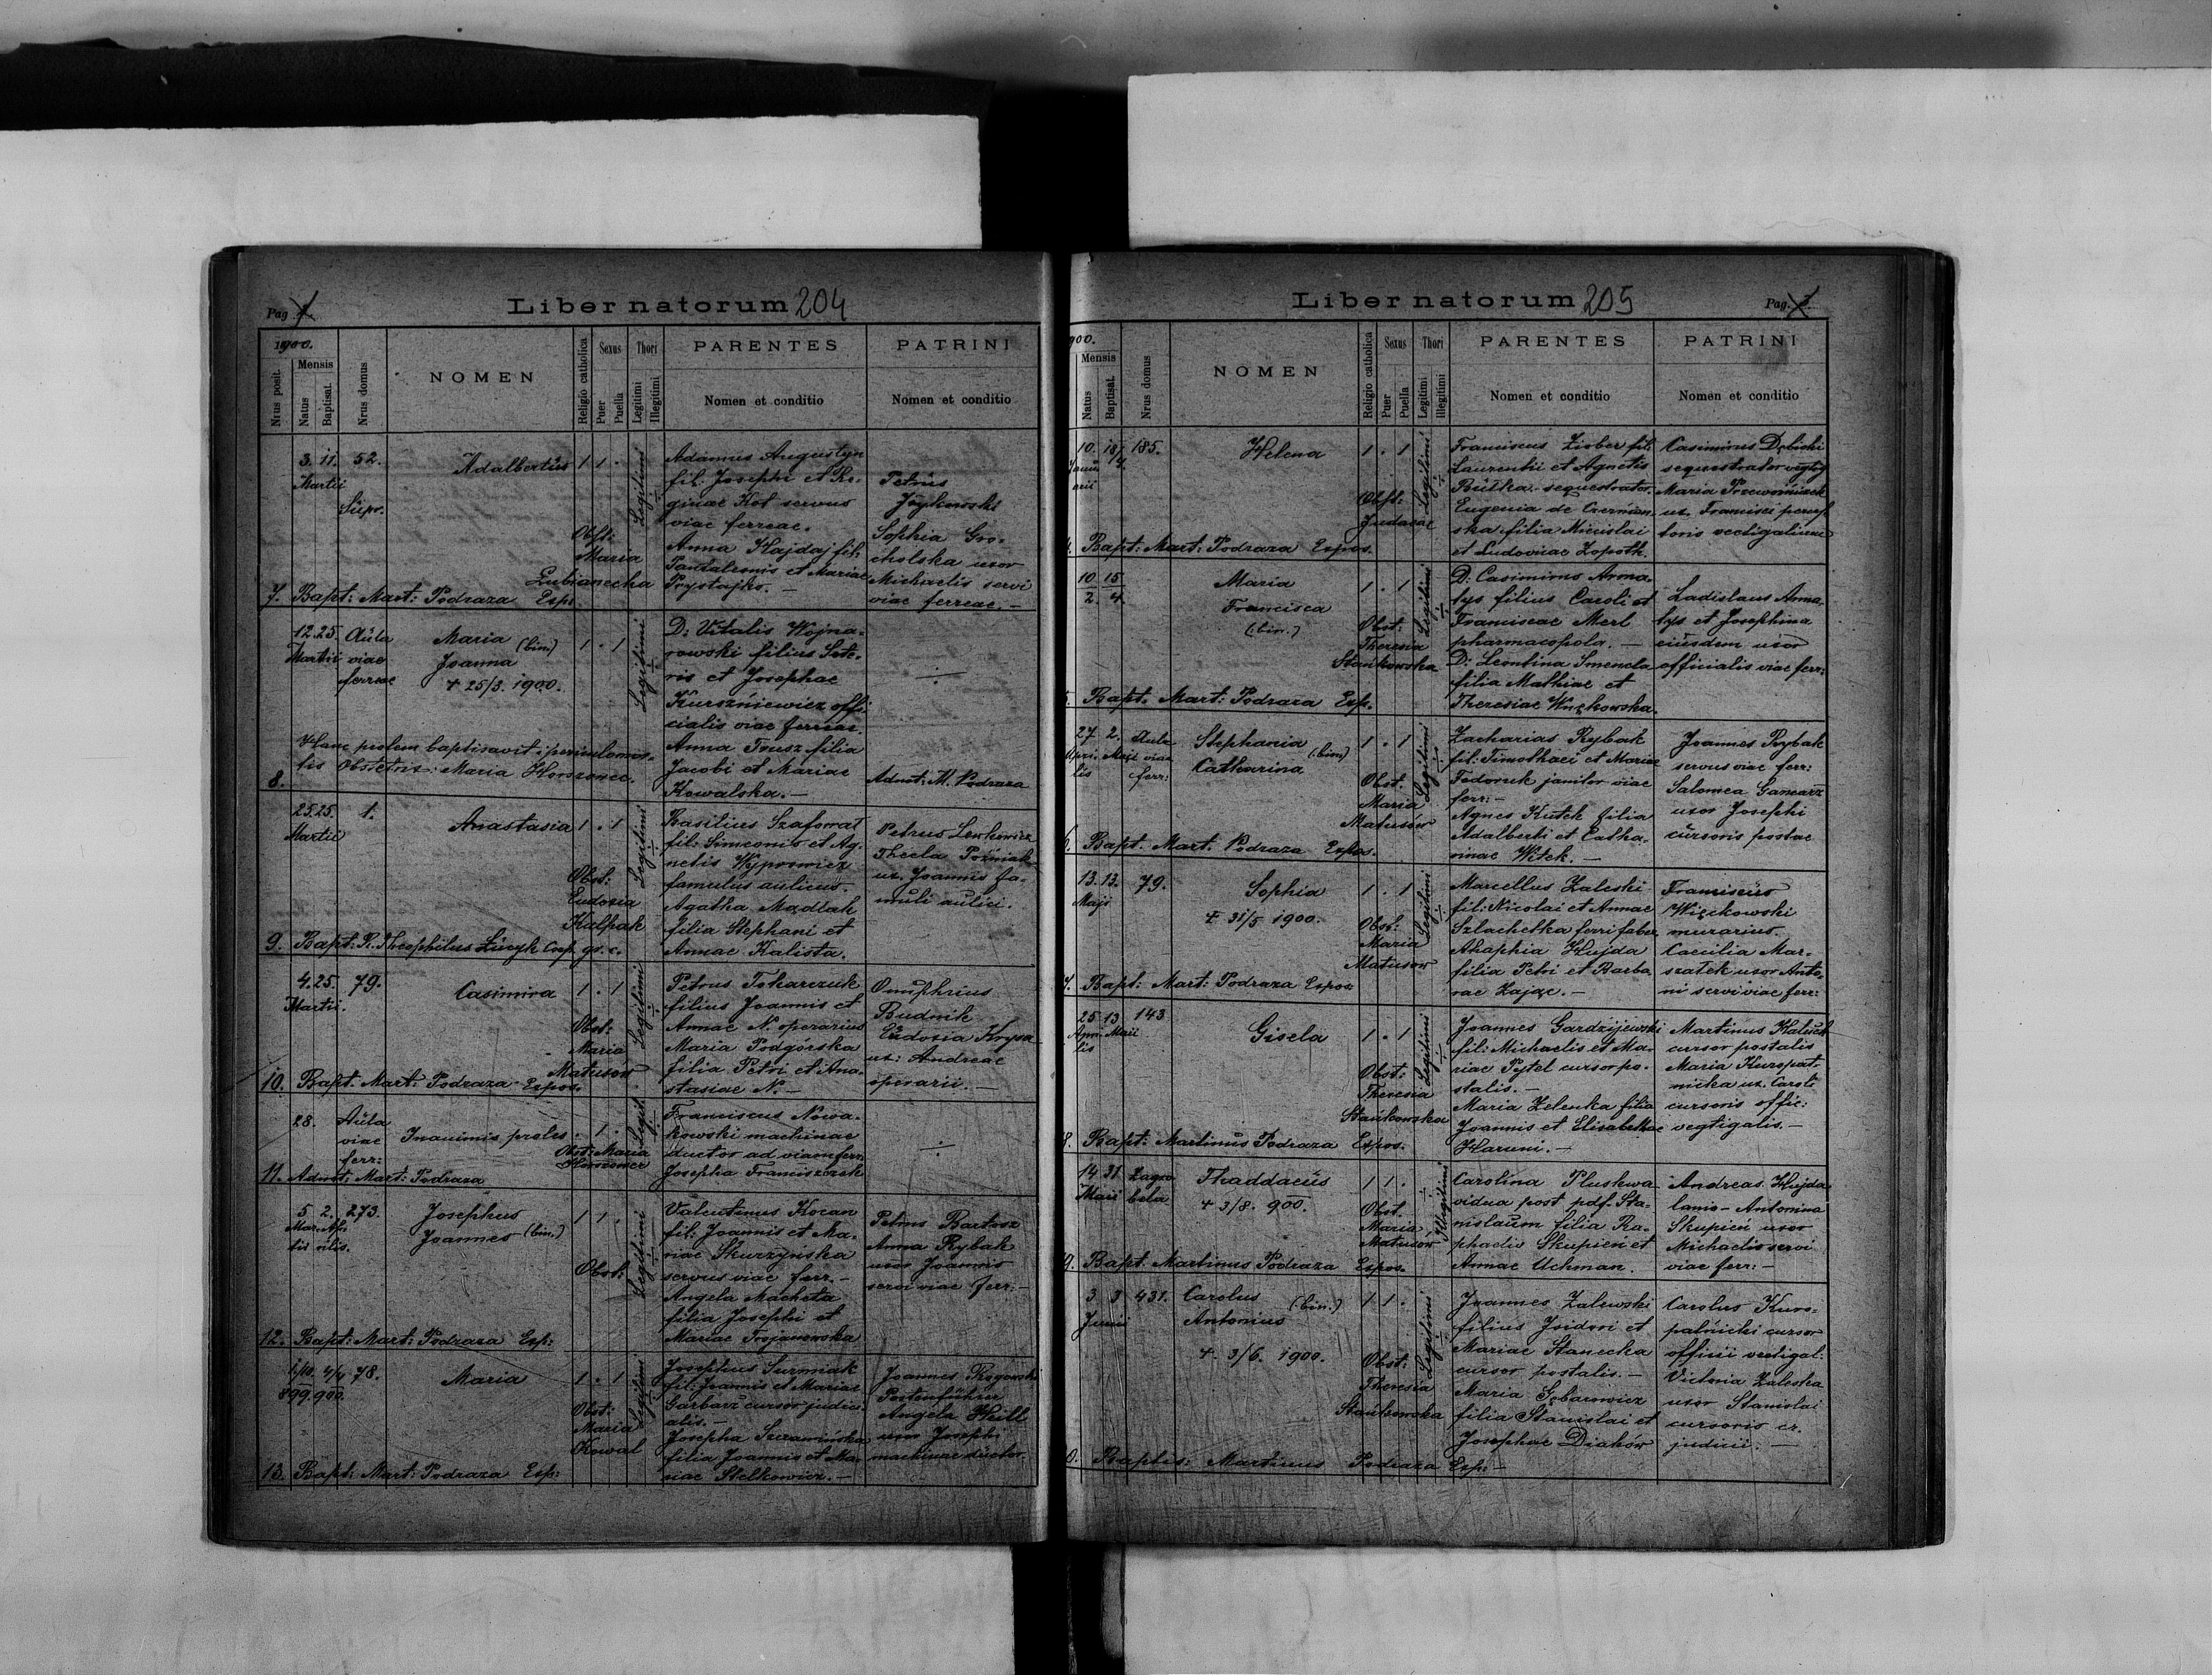 Pag 4.
Liber natorum 204
1900.
Nrus posit.
Mensis
Natus
Baptisat.
Nrus domus
NOMEN
Religio catholica
Sexus
Puer
Puella
Thori
Legitimi
Illegitimi
PARENTES
Nomen et conditio
PATRINI
Nomen et conditio
3. 11. 52. Adalbertus 1 1 .
Martii
Supr.
Legitimi
Obst:
Maria
Lubianecka
Adamus Augustyn
fil. Josephi et Re-
ginae Kot servus
viae ferreae.
Anna Hajdaj fil:
Pantaleonis et Mariae
Prystajko. —
Petrus
Sophia Gro-
cholska uxor
Michaelis servi
viae ferreae. —
7. Bapt: Mart: Podraza Exp.
12. 25. Aula Maria (bin) 1 . 1
Martii viae Joanna
ferreae + 25/3. 1900.
Legitimi
D: Vitalis Wojna-
rowski filius Sote-
ris et Josephae
Kurozniewicz offi-
cialis viae ferreae.
Anna Trusz filia
Jacobi et Mariae
Kowalska. —
Hanc prolem baptisavit i periculo mor-
tis Obstetrix: Maria Horszowec.
Adnot: M. Podraza
8.
25. 25. 1. Anastasia 1 . 1
Martii
Legitimi
Obst:
Eudoxia
Kalpak
Basilius Szaforrat
fil: Simeonis et Ag-
netis Wyprowicz
famulus aulicus.
Agatha Madlak
filia Stephani et
Annae Kalista.
Petrus Lewkowicz
Thecla Pozniak
ux. Joannis fa-
muli aulici.
9. Bapt: R. Theophilus Lucyk Coop. gr. c.
4. 25. 79. Casimira 1 . 1
Martii.
Legitimi
Obst:
Maria
Matusow
Petrus Tokarczuk
filius Joannis et
Annae N. operarius
Maria Podgórska
filia Petri et Ana-
stasiae N. —
Onuphrius
Budnik
Eudoxia Krysa
ux: Andreae
operarii. —
10. Bapt. Mart: Podraza Expos.
28. Aula
viae Inanimis proles . 1 .
ferr:
Legit.
Obst: Maria
Horszowec
Franciscus Nowa-
kowski machinae
ductor ad viam ferr:
Josepha Franciszczek
11. Adnot: Mart: Podraza
5. 2. 273. Josephus 1 1 .
Mar. Ap- Joannes (bin.)
tii rilis.
Legitimi
Obst:
Valentinus Kocan
fil: Joannis et Ma-
riae Skurzynska
servus viae ferr. —
Angela Macheta
filia Josephi et
Mariae Trojanowska
Petrus Bartosz
Anna Rybak
uxor Joannis
servi viae ferr: —
12. Bapt: Mart: Podraza Exp:
1/10. 4/4 78. Maria 1 . 1
899. 900.
Legitimi
Obst:
Maria
Kowal
Josephus Surmiak
fil: Joannis et Mariae
Garbarz cursor judici-
alis. —
Josepha Szeraminska
filia Joannis et Ma-
riae Stelkowicz. —
Joannes Rogowski
Partenführer
Angela Heill
uxor Josephi
machinae ductor.
13. Bapt: Mart: Podraza Exp:
Liber natorum 205
Pag. 5.
900.
Mensis
Natus
Baptisat.
Nrus domus
NOMEN
Religio catholica
Sexus
Puer
Puella
Thori
Legitimi
Illegitimi
PARENTES
Nomen et conditio
PATRINI
Nomen et conditio
10. 18/4. 185. Helena 1 . 1
Legitimi
Obst:
Judaeae
Franciscus Ziober fil:
Laurentii et Agnetis
Butka sequestrator.
Eugenia de Czerman-
ska filia Miecislai
et Ludovicae Zopoth.
Casimirus Debicki
sequestrator vegtig.
Maria Przeworniczek
ux. Francisci percep-
toris vectigalium
4. Bapt: Mart: Podraza Expos.
10 15 Maria 1 . 1
2. 4. Francisca
(bin.)
Legitimi
Obst:
Theresia
Stankowska
D: Casimirus Arma-
tys filius Caroli et
Franciscae Merl
pharmacopola. —
D: Leontina Smencla
filia Mathiae et
Theresiae Wnękowska.
Ladislaus Arma-
tys et Josephina
eiusdem uxor
officialis viae ferr:
5. Bapt. Mart: Podraza Exp.
27. 2. Aula Stephania (bin) 1 . 1
Apri- Maji viae Catharina
lis ferr:
Legitimi
Obst.
Maria
Matusów
Zacharias Rybak
fil: Timothaei et Mariae
Fedoruk janitor viae
ferr: —
Agnes Kutek filia
Adalberti et Catha-
rinae Witek. —
Joannes Rybak
servus viae ferr:
Salomea Gancarz
uxor Josephi
cursoris postae
6. Bapt. Mart. Podraza Expos.
13. 13. 79. Sophia 1 . 1
Maji + 31/5 1900.
Legitimi
Obst:
Maria
Matusow
Marcellus Zaleski
fil: Nicolai et Annae
Szlachetka ferri faber
Ahaphia Hujda
filia Petri et Barba-
rae Zając. —
Franciscus
Więckowski
murarius
Caecilia Mar-
szałek uxor Anto-
ni servi viae ferr:
7. Bapt: Mart: Podraza Expos:
25 13 143 Gisela 1 . 1
Apri- Maii
lis
Legitimi
Obst:
Theresia
Stankowska
Joannes Gardzijewski
fil: Michaelis et Ma-
riae Pytel cursor po-
stalis. —
Maria Zelenka filia
Joannis et Elisabethae
Haruni. —
Martinus Kaluch
cursor postalis
Maria Kuropat-
nicka ux. Caroli
cursoris offic:
vegtigalis. —
8. Bapt: Martinus Podraza Expos.
14 31 Zagro- Thaddaeus 1 1 .
Maii bela + 3/8. 900.
Illegitimi
Obst.
Maria
Matusów
Carolina Pluskwa
vidua post pdf. Sta-
nislaum filia Ra-
phaelis Skupień et
Annae Uchman.
Andreas Hujda
lanio – Antonina
Skupień uxor
Michaelis servi
viae ferr: —
9. Bapt. Martinus Podraza Expos.
3 3 431. Carolus (bin.) 1 1 .
Junii Antonius
+ 3/6. 1900.
Legitimi
Obst:
Theresia
Stankowska
Joannes Zalewski
filius Isidori et
Mariae Stanecka
cursor postalis. —
Maria Gębarowicz
filia Stanislai et
Josephae Diaków
Carolus Kuro-
patnicki cursor
officii vectigal:
Victoria Zaleska
uxor Stanislai
cursoris cr.
judicii. —
0. Baptis: Martinus Podraza Exp: —